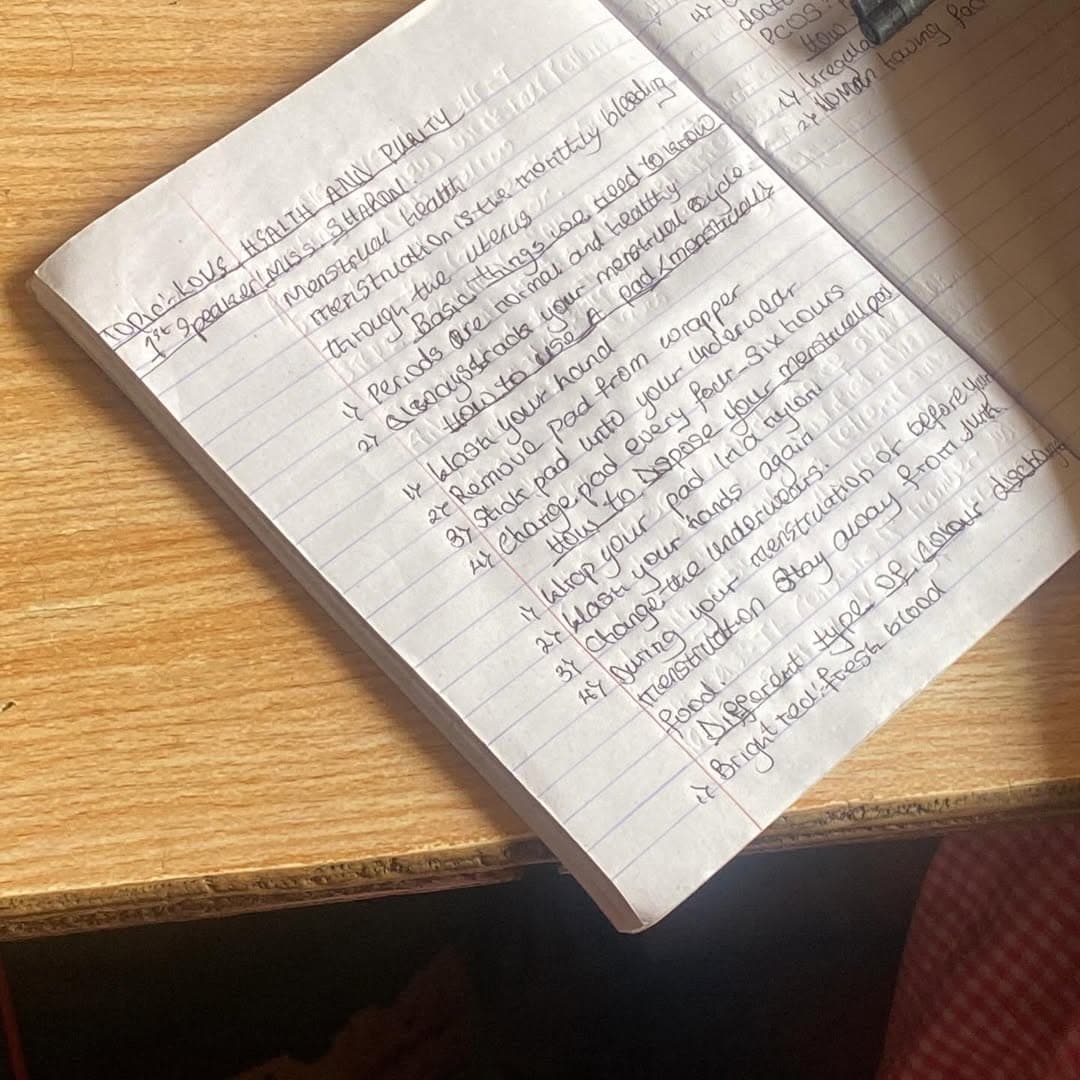 TOPIC:- LOVE, HEALTH ANN PURITY
1st Speaker: MISS SHARON
Menstrual health
menstruation is the monthly bleeding
through the uterus.
Basic things we need to know
1 Periods are normal and healthy
2 Always track your menstrual cycle
How to use A pad <menstrual>
1 Wash your hand
2 Remove pad from wrapper
3 Stick pad unto your underwear
4 Change pad every four-six hours
How to Dispose your menstrual pad
1 Wrap your pad in a nylon
2 Wash your hands again
3 Change the underwears.
4 During your menstruation or before your
menstruation stay away from Junk
food
Different type of colour discharge
1 Bright red: fresh blood
4
doctor
PCOS
How
1 Irregular
2 Woman having